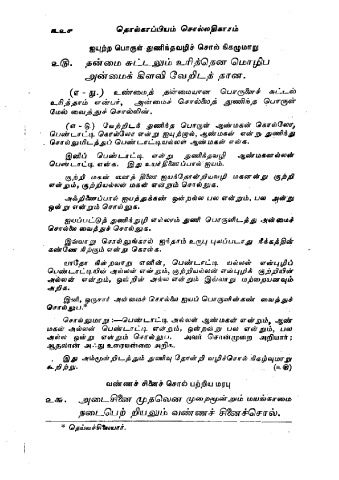 உஉசு தொல்காப்பியம் சொல்லதிகாரம்
ஐயுற்ற பொருள் துணிந்தவழிச் சொல் நிகழுமாறு
உடு. தன்மை சுட்டலும் உரித்தென மொழிப
அன்மைக் கிளவி வேறிடத் தான.
(எ - து.) உண்மைத் தன்மையான பொருளைச் சுட்டல்
உரித்தாம் என்பர், அன்மைச் சொல்லைத் துணிந்த பொருள்
மேல் வைத்துச் சொல்லின்.
(எ - டு) வேற்றிடக் துணிந்த பொருள் ஆண்மகன் கொல்லோ,
பெண்டாட்டி கொல்லோ என்று ஐயுற்றுழி, ஆண்மகன் என்று துணிந்து
சொல்லுமிடத்துப் பெண்டாட்டியல்லன் ஆண்மகன் எல்க.
இனிப் பெண்டாட்டி என்று துணிந்தவழி ஆண்மகனல்லள்
பெண்டாட்டி என்க. இது உயர்திணைப்பால் ஐயம்.
குற்றி மகன் எனத் திணை ஐயக்தோன்றியவழி மகனன்று குற்றி
என்றும், குற்றியல்லன் மகன் என்றும் சொல்லுக.
அஃறிணைப்பால் ஐயத்துக்கண் ஒன்றல்ல பல என்றும், பல அன்று
ஒன்று என்றும் சொல்லுக.
ஐயப்பட்டுத் துணிந்துழி எல்லாம் துணி பொருளிடத்து அன்மைச்
சொல்லை வைத்துச் சொல்லுக.
இவ்வாறு சொல்லுங்கால் ஐந்தாம் உருபு புலப்படாது நீக்கத்தின்
கண்ணே நிற்கும் என்று கொள்க.
யாதோ நின்றவாறு எனின், பெண்டாட்டி யல்லன் என்புழிப்
பெண்டாட்டியின் அல்லன் என்றும், குற்றியல்லன் என்புழிக் குற்றியின்
அல்லன் என்றும், ஒன்றின் அல்ல என்றும் இவ்வாறு மற்றையனவும்
அறிக.
இனி, ஒருசார் அன்மைச் சொல்லை ஐயப் பொருளின்கண் வைத்துச்
சொல்லுப.*
சொல்லுமாறு :—பெண்டாட்டி அல்லன் ஆண்மகன் என்றும், ஆண்
மகன் அல்லள் பெண்டாட்டி என்றும், ஒன்றன்று பல என்றும், பல
அல்ல ஒன்று என்றும் சொல்லுப. அவர் சொன்முறை அறியார்;
ஆதலான் அஃது உரையன்மை அறிக.
இது அம்மூன்றிடத்தும் துணிவு தோன்றி வழிச்சொல் நிகழ்வுமாறு
கூறிற்று.
வண்ணச் சினைச் சொல் பற்றிய மரபு
உசு. அடைசினை முதலென முறைமூன்றும் மயங்காமை
நடைபெற் றியலும் வண்ணச் சினைச்சொல்.
* தெய்வச்சிலையார்.